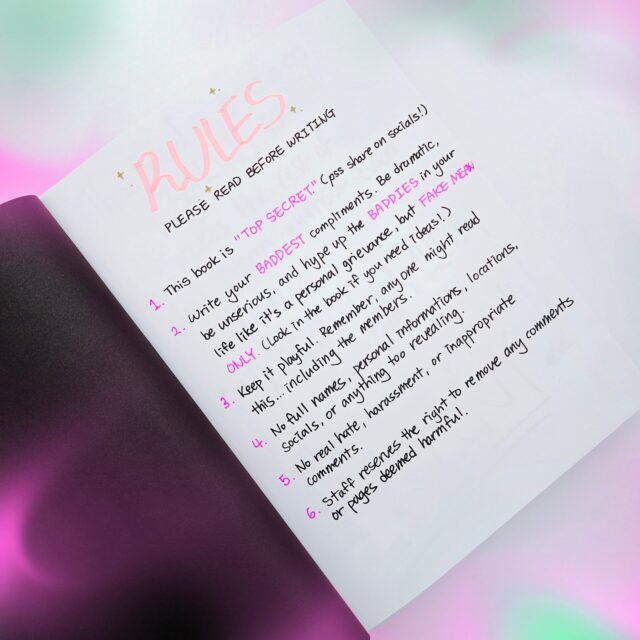 RULES
PLEASE READ BEFORE WRITING
1. This book is "TOP SECRET" (pss share on socials!)
2. Write your BADDEST compliments. Be dramatic,
be unserious, and hype up the BADDIES in your
life like it's a personal grievance, but FAKE MEAN
ONLY. (Look in the book if you need ideas!)
3. Keep it playful. Remember, anyone might read
this... including the members.
4. No full names, personal informations, locations,
socials, or anything too revealing.
5. No real hate, harassment, or inappropriate
comments.
6. Staff reserves the right to remove any comments
or pages deemed harmful.